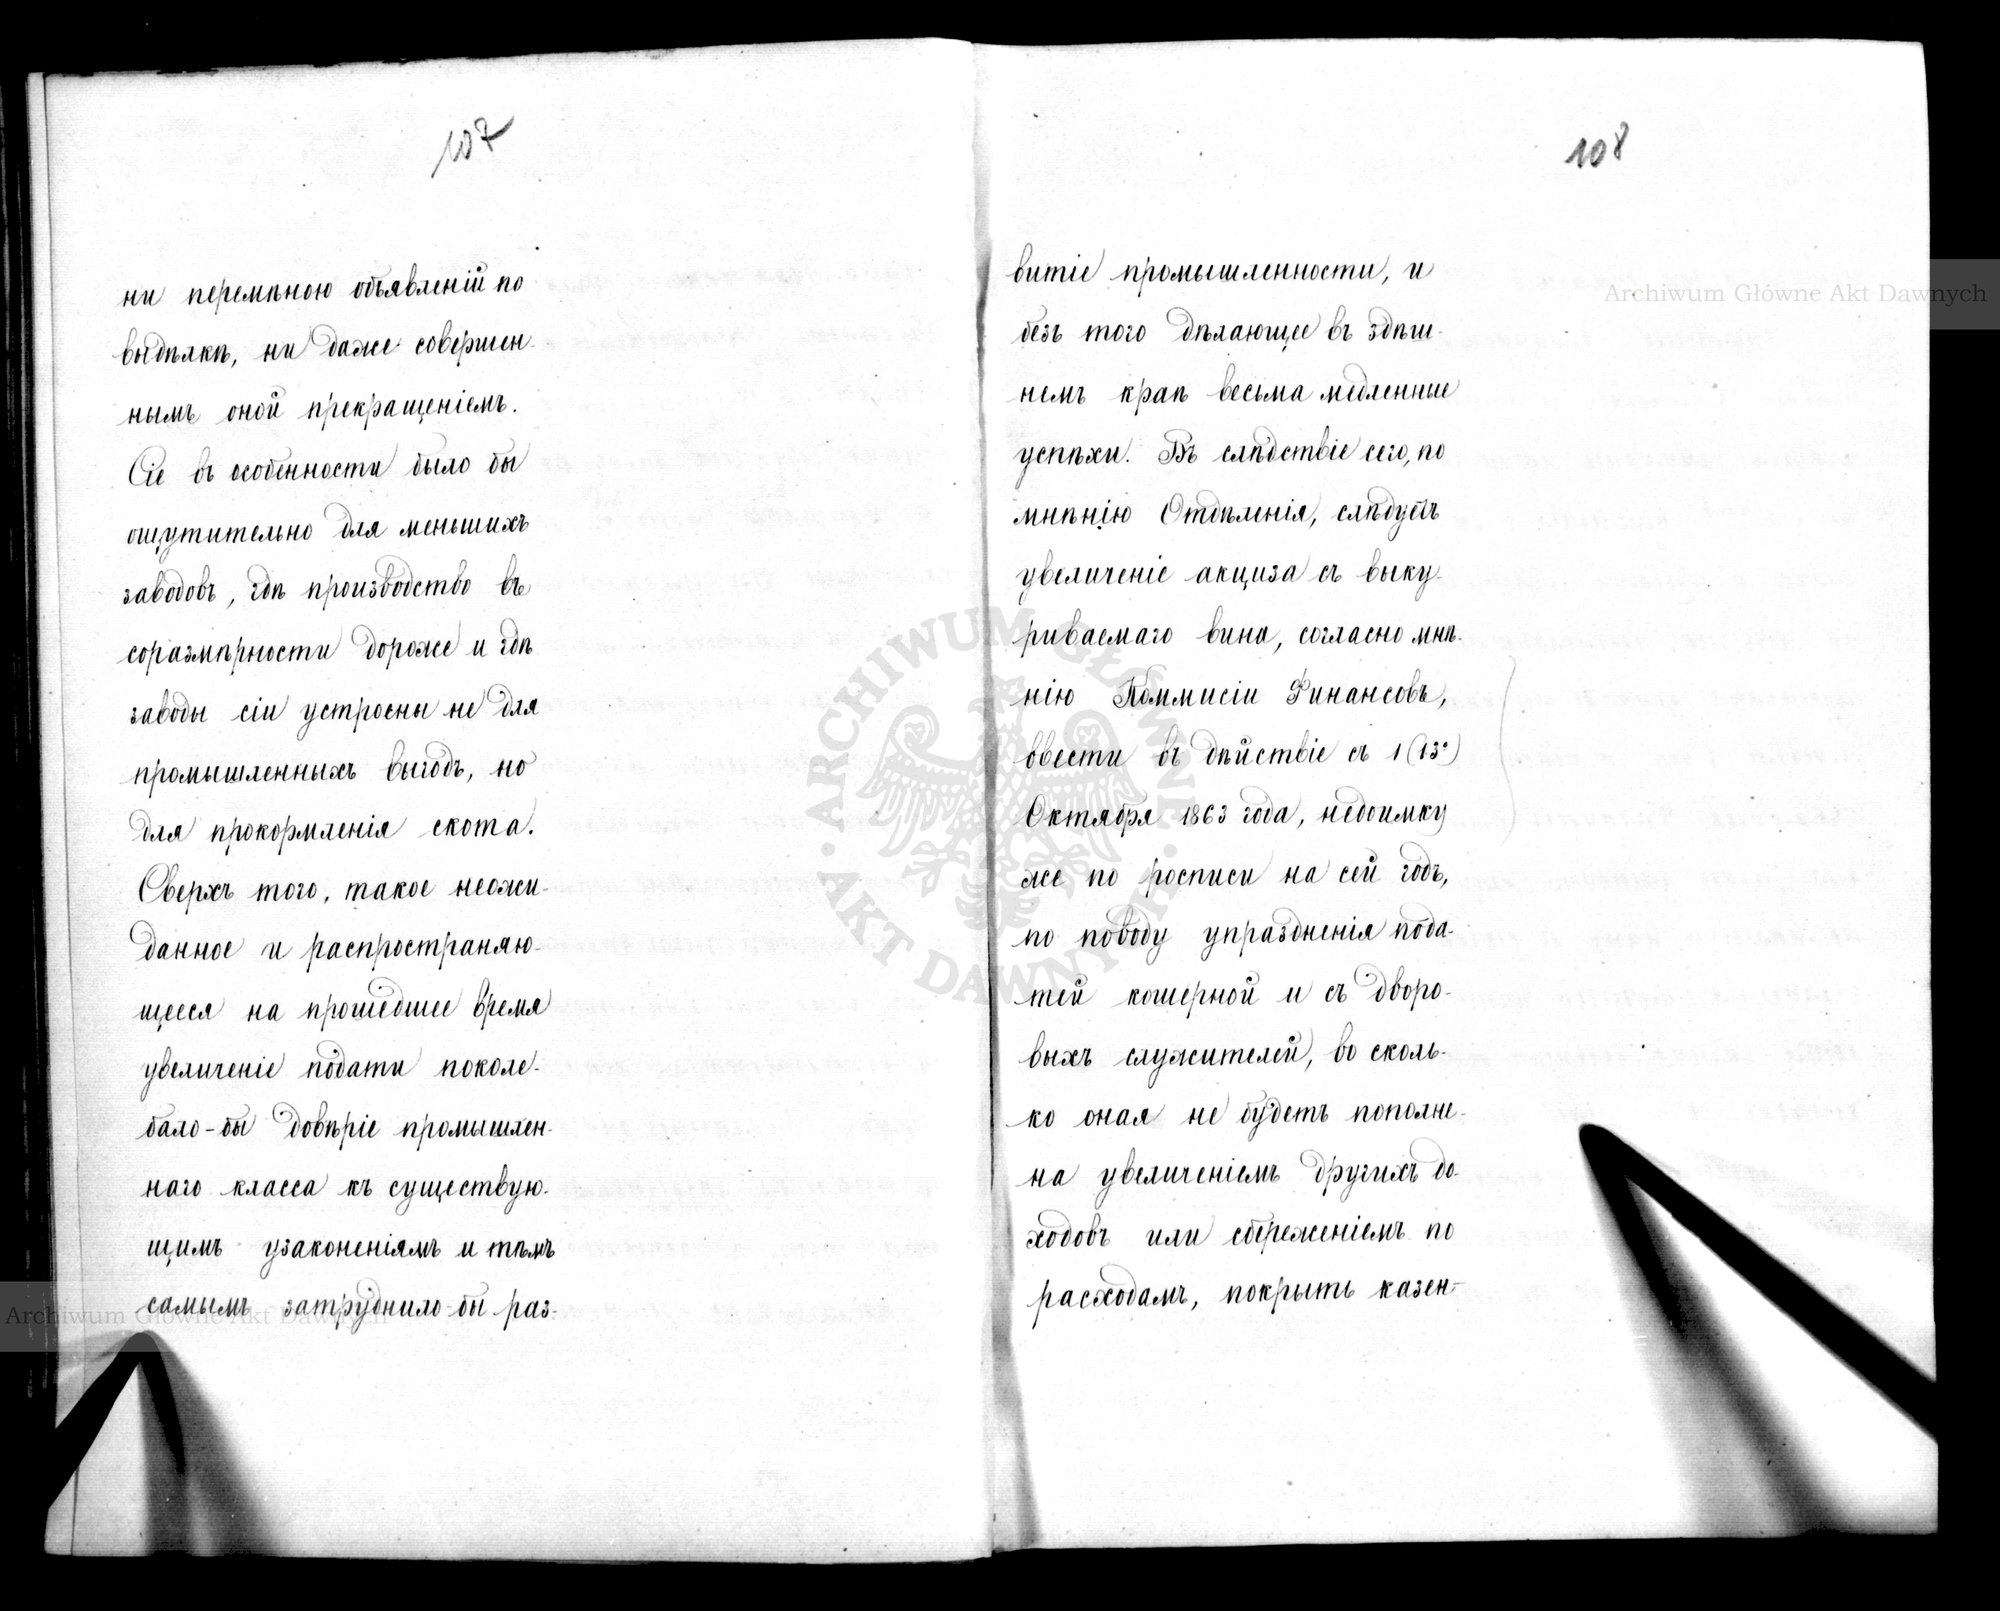 107
ни перемѣною объявленій по
выдѣлкѣ, ни даже совершен-
нымъ оной прекращеніемъ.
Сіе въ особенности было бы
ощутительно для меньшихъ
заводовъ, гдѣ производство въ
соразмѣрности дороже и гдѣ
заводы сіи устроены не для
промышленныхъ выгодъ, но
для прокормленія скота.
Сверхъ того, такое неожи-
данное и распространяю-
щееся на прошедшее время
увеличеніе подати поколе-
бало-бы довѣріе промышлен-
наго класса къ существую-
щимъ узаконеніямъ и тѣмъ
самымъ затруднило-бы раз-
108
витіе промышленности, и
безъ того дѣлающее въ здѣш-
немъ краѣ весьма медленные
успѣхи. Въ слѣдствіе сего, по
мнѣнію Отдѣленія, слѣдуетъ
увеличеніе акциза съ выку-
риваемаго вина, согласно мнѣ-
нію Коммисіи Финансовъ,
ввести въ дѣйствіе съ 1 (13го)
Октября 1863 года, недоимку
же по росписи на сей годъ,
по поводу упраздненія пода-
тей кошерной и съ дворо-
выхъ служителей, во сколь-
ко оная не будетъ пополне-
на увеличеніемъ другихъ до-
ходовъ или сбереженіемъ по
расходамъ, покрыть казен-
Archiwum Główne Akt Dawnych
Archiwum Główne Akt Dawnych
ARCHIWUM GŁÓWNE AKT DAWNYCH